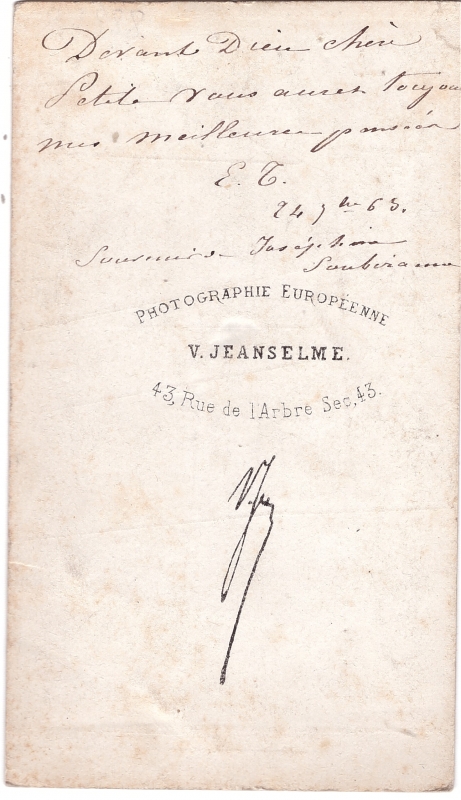 Devant Dieu chère
Petite vous aurez toujou
mes meilleures pensées
E. T.
24 7bre 63.
Souvenir de Joséphine
Soubiranne
PHOTOGRAPHIE EUROPÉENNE
V. JEANSELME.
43, Rue de l'Arbre Sec, 43.